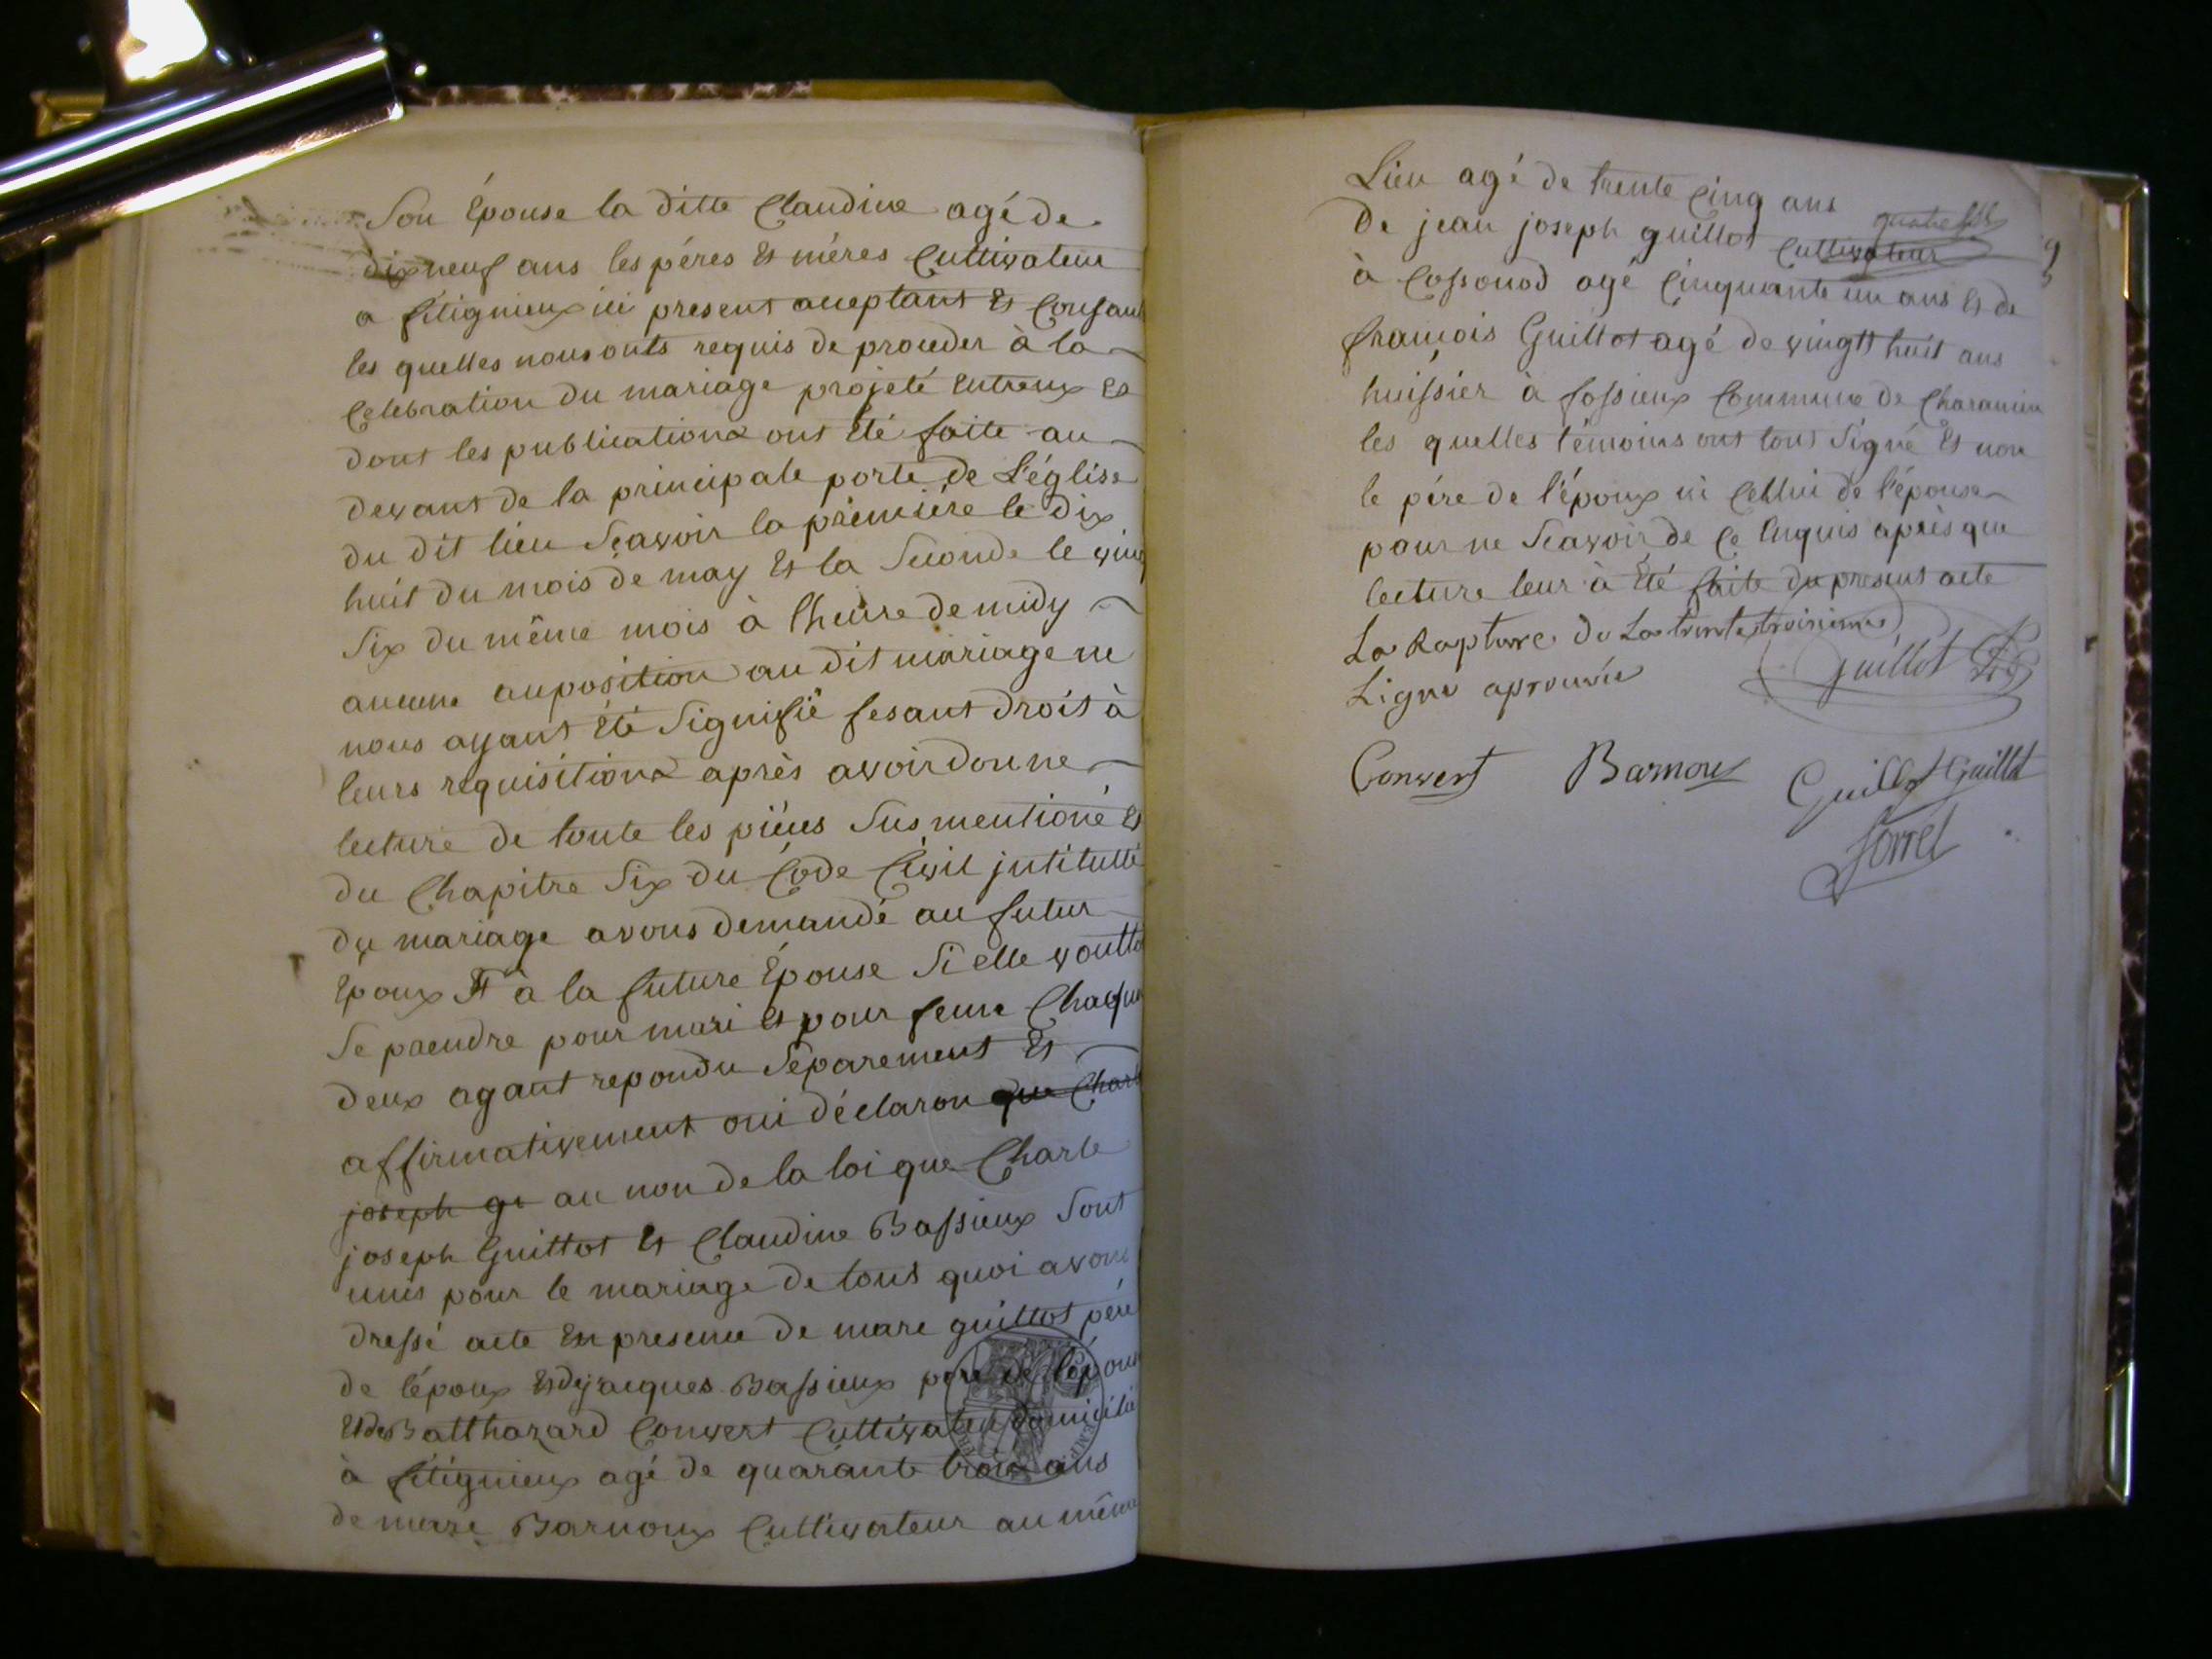 Son épouse la ditte Claudine agé de
dix neuf ans les péres et méres Cultivateur
a fitignieux ici present acceptant et Consant
les quelles nous onts requis de proceder à la
Celebration du mariage projeté entreux et
dont les publications ont été faite au
devant de la principale porte de L'église
du dit lieu Scavoir la prémiére le dix
huit du mois de may et la Seconde le vingt
Six du même mois à lheure de midy
aucune auposition au dit mariage ne
nous ayant été Signifié fesant droit à
leurs requisitions après avoir donne
lecture de toute les piéces Sus mentioné et
du Chapitre Six du Code Civil jntitullé
du mariage avons demandé au futur
époux et à la future épouse Si elle voulle
Se prendre pour mari et pour feme Chaqun
deux ayant repondu Séparement et
affirmativement oui déclaron que Charl
joseph gi au non de la loi que Charle
joseph Guillot et Claudine Bassieux Sont
unis pour le mariage de tout quoi avons
dressé acte en presence de marc guillot pére
de lépoux et de jacques Bassieux pere de lépouse
et de Balthazard Convert Cultivateur domicilié
à fitignieux agé de quarante trois ans
de marc Barnoux Cultivateur au même
Lieu agé de trente Cinq ans
De jean joseph guillot Cultivateur
à Cossonod agé Cinquante un ans et de
françois Guillot agé de vingtt huit ans
huissier à fossieux Commune de Charancin
les quelles témoins ont tous Signé et non
le pére de l'époux ni Cellui de l'épouse
pour ne Scavoir de Ce Enquis après que
lecture leur à été faite du present acte
La Rapture de La trente troisieme
Ligne aprouvée
Guillot
Convert Barnoux Guillot Guillot
Sorrel